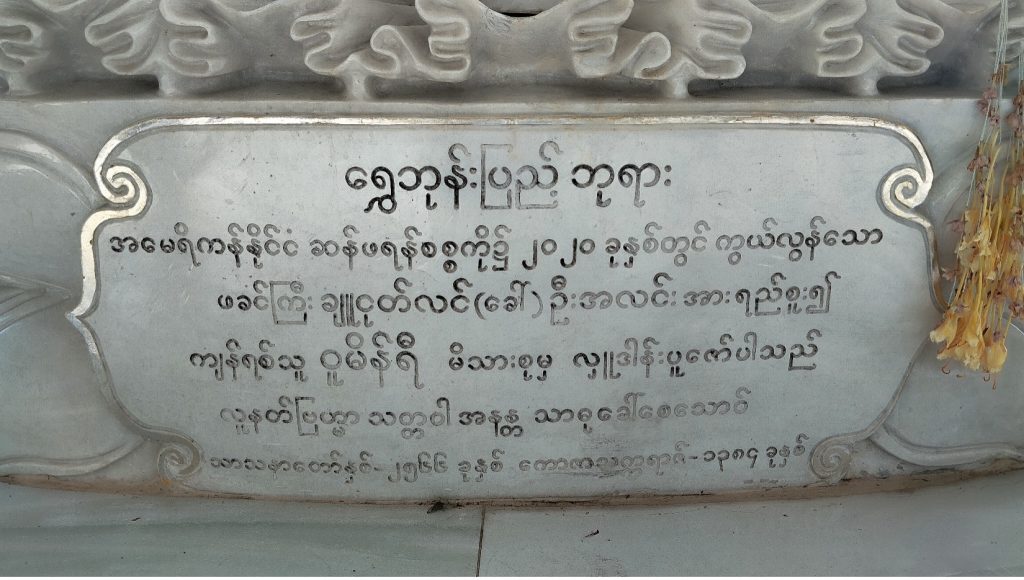 ရွှေဘုန်းပြည့် ဘုရား
အမေရိကန်နိုင်ငံ ဆန်ဖရန်စစ္စကို၌ ၂၀၂၀ ခုနှစ်တွင် ကွယ်လွန်သော
ဖခင်ကြီး ချူူငုတ်လင်(ခေါ်) ဦးအလင်းအားရည်စူး၍
ကျန်ရစ်သူ ဝူမိန်ရီ မိသားစုမှ လှူဒါန်းပူဇော်ပါသည်
လူနတ်ဗြဟ္မာ သတ္တဝါ အနန္တ သာဓုခေါ်စေသောဝ်
သာသနာတော်နှစ်-၂၅၆၆ ခုနှစ် ကောဇာသက္ကရာဇ်-၁၃၈၄ ခုနှစ်